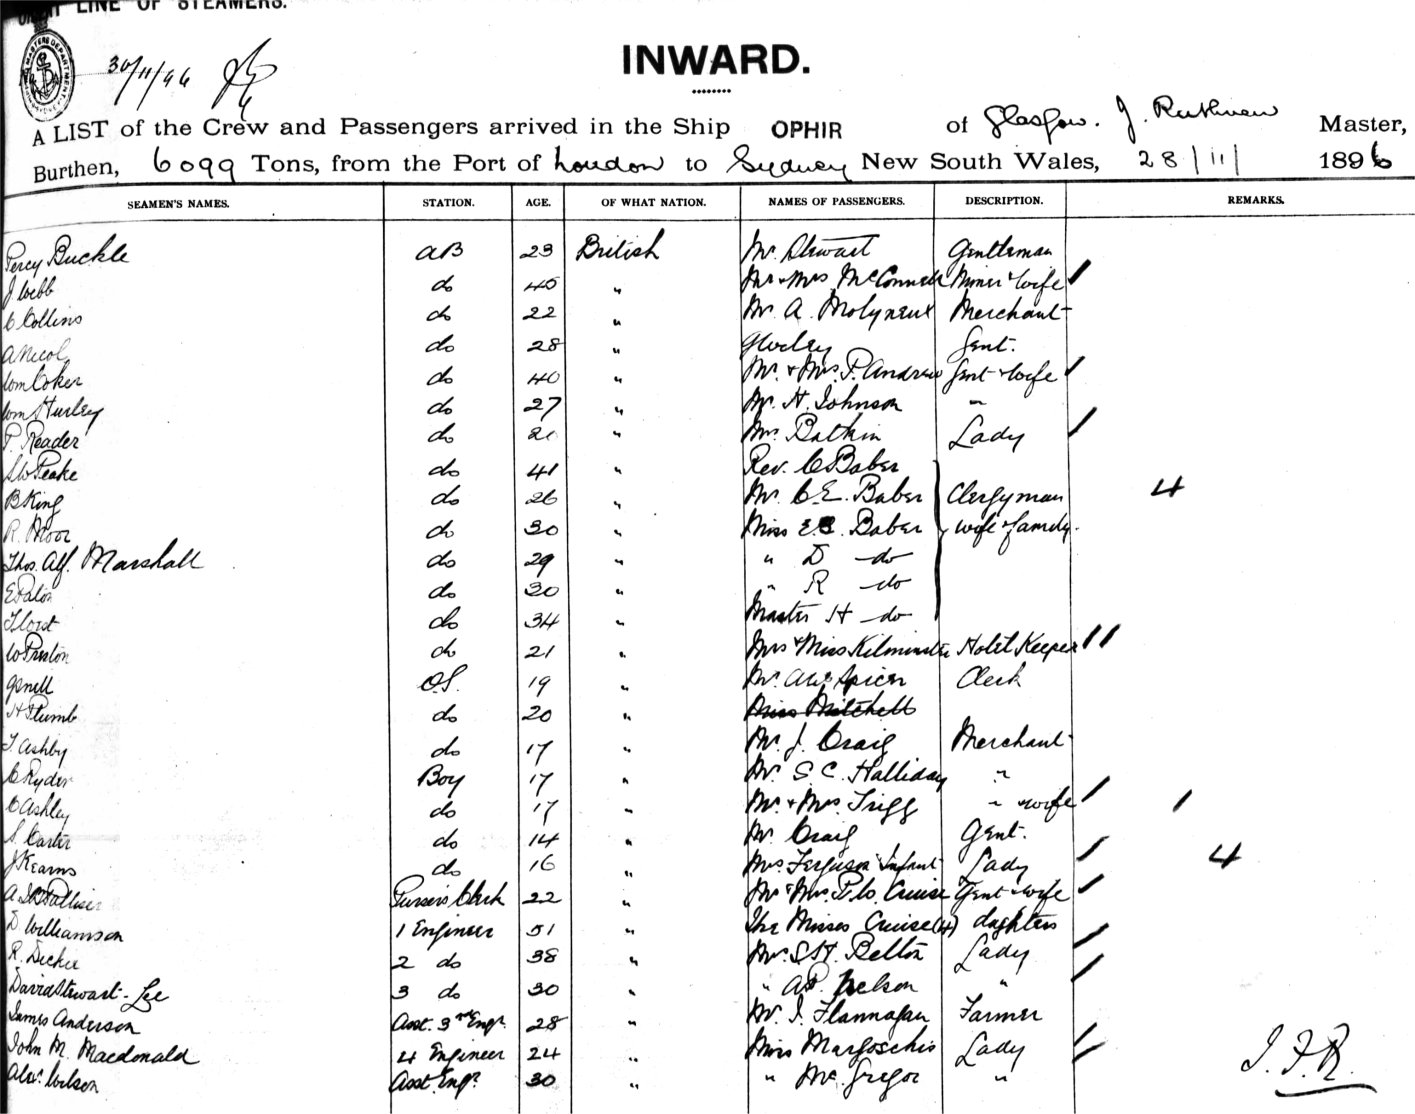 ORIENT LINE OF STEAMERS.
MASTERS DEPARTMENT
30/11/96
INWARD.
A LIST of the Crew and Passengers arrived in the Ship OPHIR of Glasgow. J. Ruthven Master,
Burthen, 6099 Tons, from the Port of London to Sydney New South Wales, 28/11/ 1896
SEAMEN'S NAMES. STATION. AGE. OF WHAT NATION. NAMES OF PASSENGERS. DESCRIPTION. REMARKS.
Percy Buckle AB 23 British Mr. Stewart Gentleman
J. Webb do 40 " Mr & Mrs McConnell Miner & wife /
C Collins do 22 " Mr A. Molyneux Merchant
A Nicol do 28 " Gent.
Wm Coker do 40 " Mr. & Mrs. P. Andrew Gent & wife /
Wm Hurley do 27 " Mr. H. Johnson "
T. Reader do " Mrs Batkin Lady /
S W Peake do 41 " Rev. C Baber
B King do 26 " Mr. C. E. Baber Clergyman 4
R. Moor do 30 " Miss E. Baber wife & family.
Thos. Alf. Marshall do 29 " " D do
do 30 " " R do
do 34 " Master H do
W Preston do 21 " Mrs & Miss Kilminster Hotel Keeper //
O.S. 19 " Mr. Spicer Clerk
H Plumb do 20 " Miss Mitchell
T. Ashby do 17 " Mr. J. Craig Merchant
C Ryder Boy 17 " Mr. S. C. Halliday "
C Ashley do 17 " Mr. & Mrs. Trigg " wife / /
S. Carter do 14 " Mr. Craig Gent.
J Kearns do 16 " Mrs Ferguson & Infant Lady / 4
Pursers Clerk 22 " Mr & Mrs Cruise Gent & wife /
D Williamson 1 Engineer 51 " The Misses Cruise (4) daghters
R. Dickie 2 do 38 " Mrs. S. H. Belton Lady /
David Stewart-Lee 3 do 30 " " Nelson " /
James Anderson Asst. 3rd Engr. 28 " Mr. J. Flannagan Farmer
John M. Macdonald 4 Engineer 24 " Miss Margoschis Lady /
Alex. Wilson Asst. Engr. 30 " " McGregor " /
J. F. R.